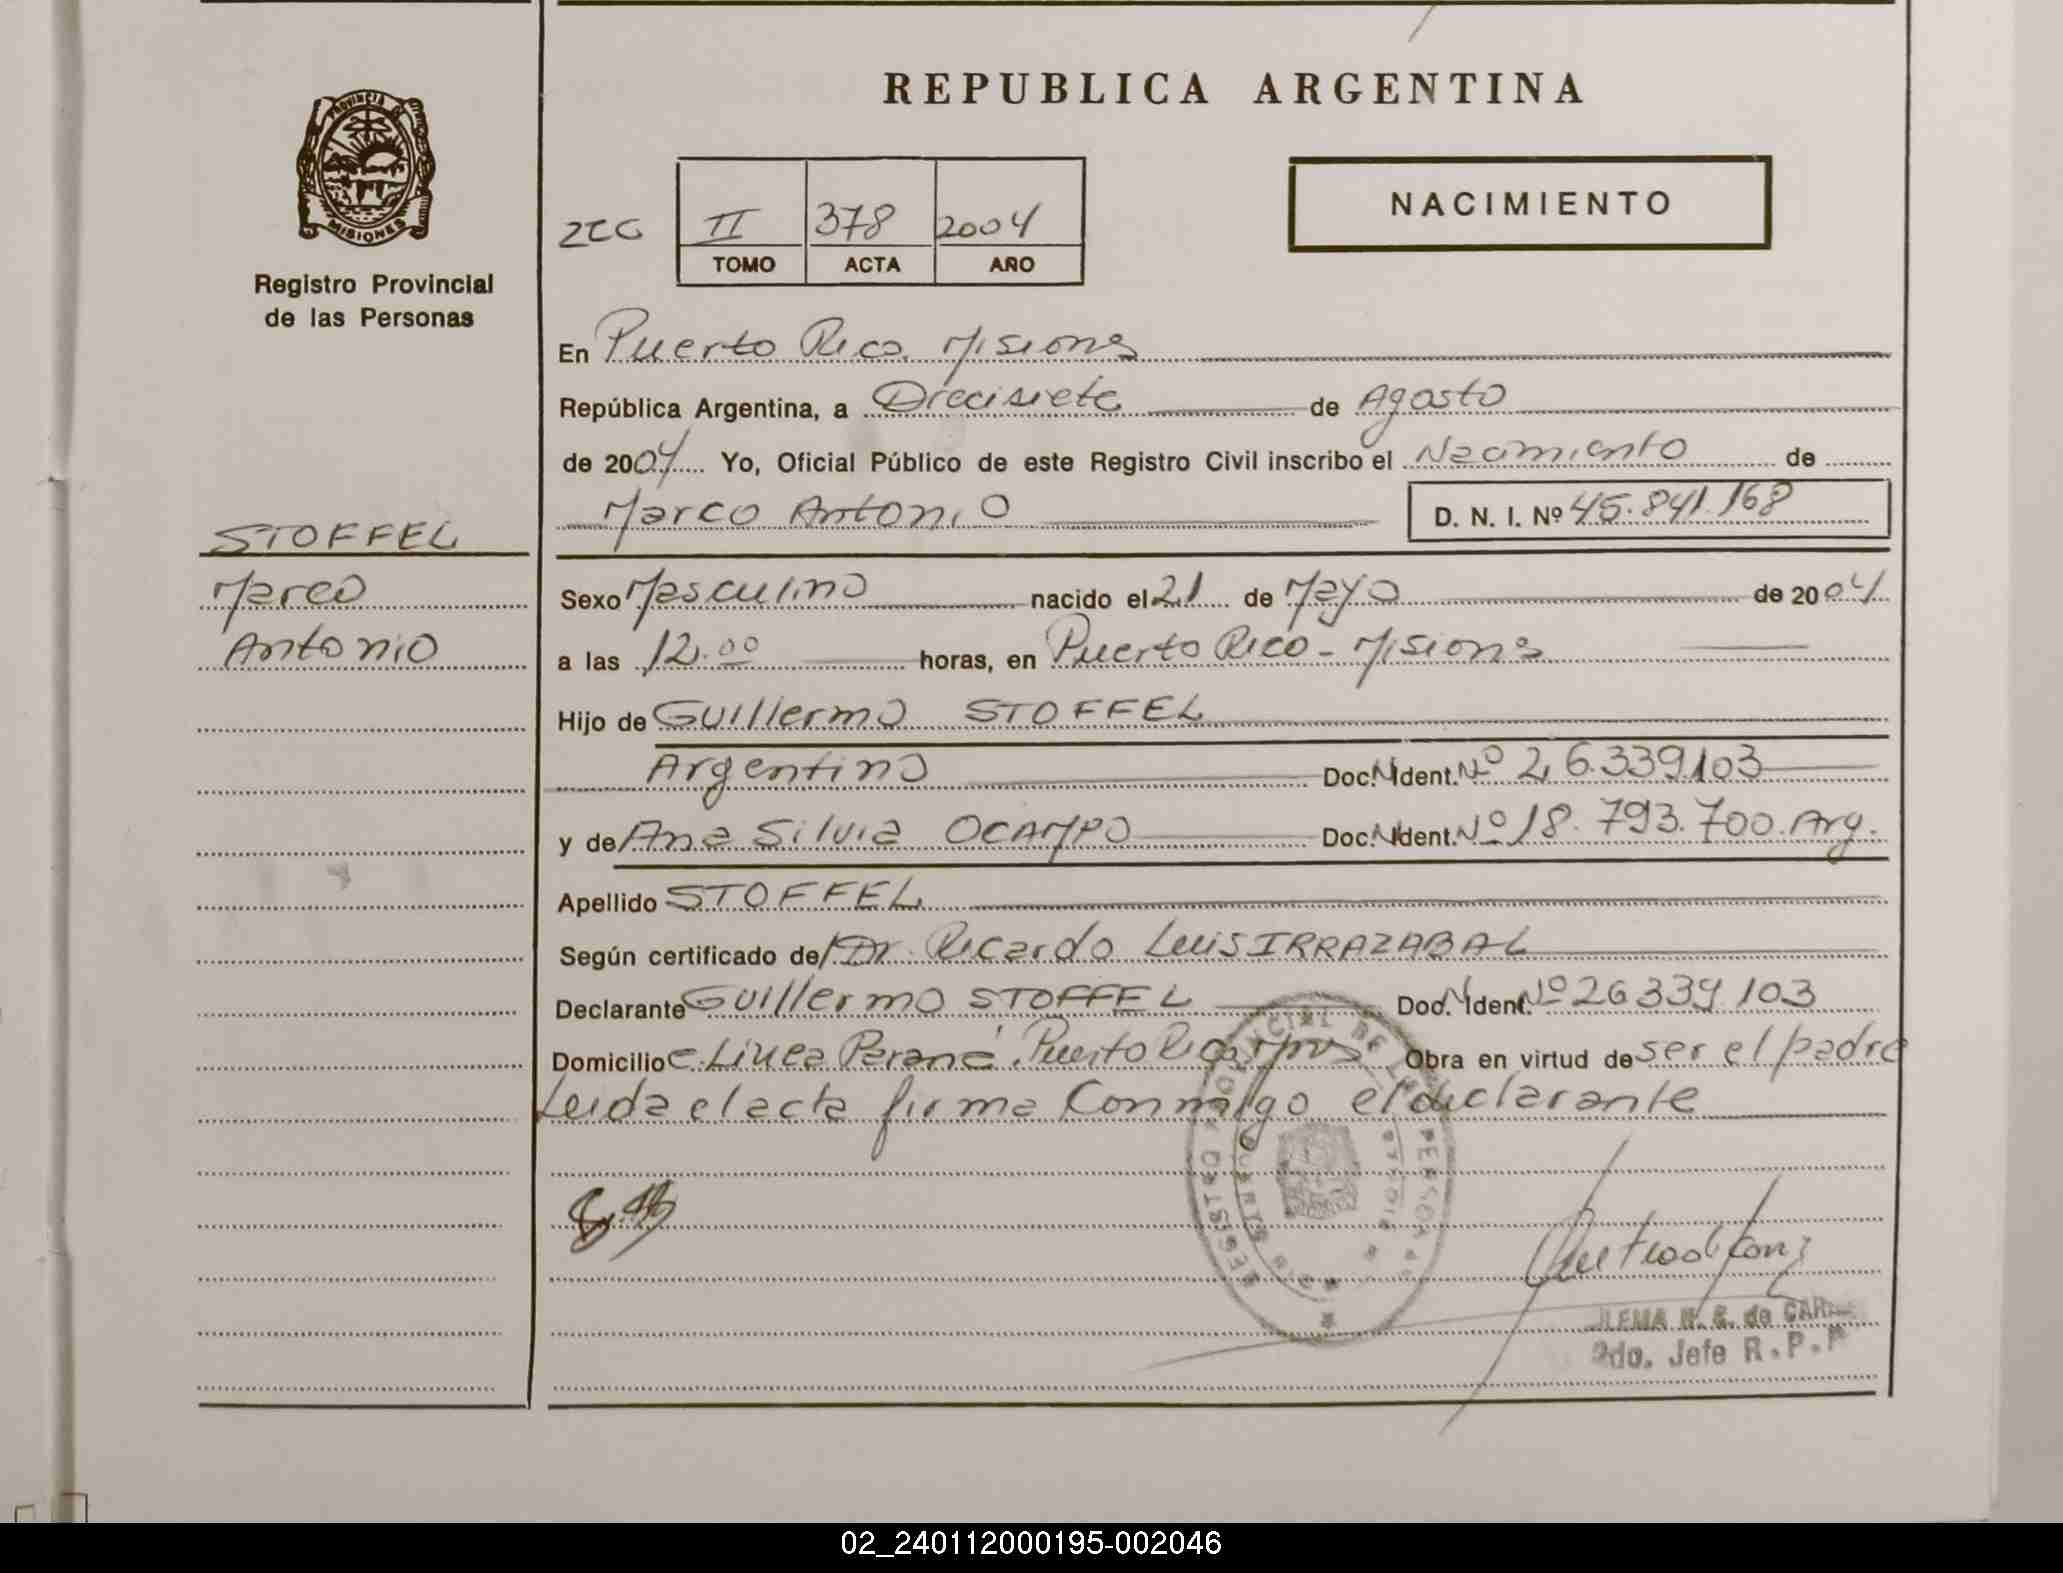 REPUBLICA ARGENTINA
PROVINCIA DE
MISIONES
Registro Provincial
de las Personas
NACIMIENTO
II 378 2004
TOMO ACTA AÑO
En Puerto Rico Misiones
República Argentina, a Diecisiete de Agosto
de 2004 Yo, Oficial Público de este Registro Civil inscribo el Nacimiento de
Marco Antonio D. N. I. Nº 45.841.168
STOFFEL
Marco
Antonio
Sexo Masculino nacido el 21 de Mayo de 2004
a las 12.00 horas, en Puerto Rico - Misiones
Hijo de Guillermo STOFFEL
Argentino Doc. N. Ident. Nº 26.339.103
y de Ana Silvia OCAMPO Doc. N. Ident. Nº 18.793.700. Arg.
Apellido STOFFEL
Según certificado del Dr. Ricardo Luis IRRAZABAL
Declarante Guillermo STOFFEL Doc. N. Ident. Nº 26339.103
Domicilio Linea Paraná. Puerto Rico Obra en virtud de ser el padre
Leida el acta firma Conmigo el declarante
REGISTRO PROVINCIAL DE LAS PERSONAS
de
2do. Jefe R.P.P
02_240112000195-002046